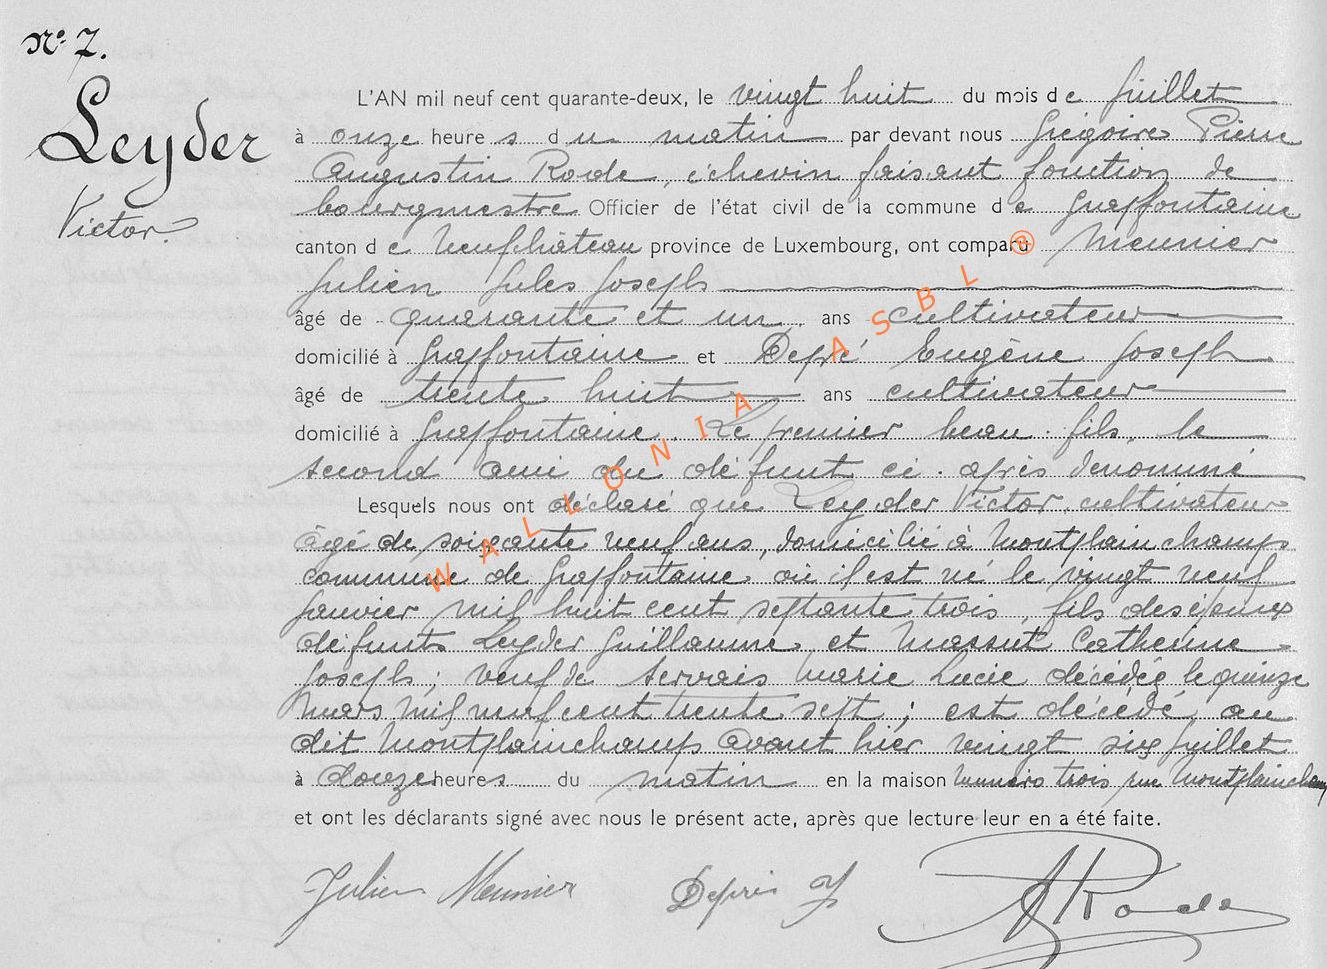 No. 7.
Leyder
Victor.
L'AN mil neuf cent quarante-deux, le vingt huit du mois de juillet
à onze heures du matin par devant nous Grégoire Pierre
Augustin Rode, échevin faisant fonction de
bourgmestre Officier de l'état civil de la commune de Graffontaine
canton de Neufchâteau province de Luxembourg, ont comparu Meunier
Julien Jules Joseph
âgé de quarante et un ans cultivateur
domicilié à Graffontaine et Depré Eugène Joseph
âgé de trente huit ans cultivateur
domicilié à Graffontaine. Le premier beau-fils, le
second ami du défunt ci-après dénommé
Lesquels nous ont déclaré que Leyder Victor, cultivateur
âgé de soixante neuf ans, domicilié à Montplainchamps
commune de Graffontaine où il est né le vingt neuf
janvier mil huit cent septante trois, fils des époux
défunts Leyder Guillaume et Massut Catherine
Joseph; veuf de Servais Marie Lucie décédée le quinze
Mars mil neuf cent trente sept; est décédé, au
dit Montplainchamps avant hier vingt six juillet
à douze heures du matin en la maison numéro trois rue Montplainchamps
et ont les déclarants signé avec nous le présent acte, après que lecture leur en a été faite.
Julien Meunier Depré J ARode
WALLONIA ASBL ®